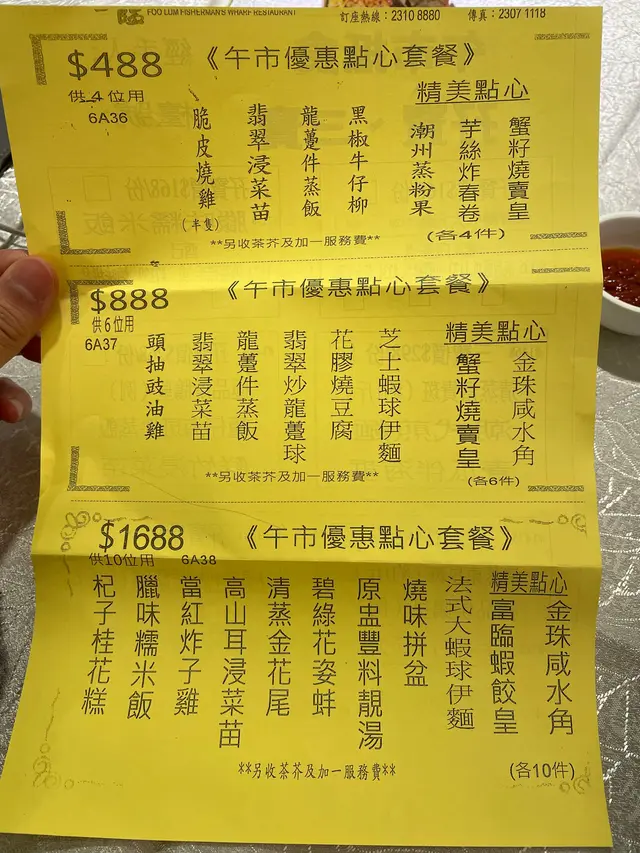 FOO LUM FISHERMAN'S WHARF RESTAURANT
訂座熱線：2310 8880
傳真：2307 1118
$488
《午市優惠點心套餐》
供4位用
6A36
精美點心
蟹籽燒賣皇
芋絲炸春卷
潮州蒸粉果
(各4件)
黑椒牛仔柳
龍躉件蒸飯
翡翠浸菜苗
脆皮燒雞
(半隻)
**另收茶芥及加一服務費**
$888
《午市優惠點心套餐》
供6位用
6A37
精美點心
金珠咸水角
蟹籽燒賣皇
(各6件)
芝士蝦球伊麵
花膠燒豆腐
翡翠炒龍躉球
龍躉件蒸飯
翡翠浸菜苗
頭抽豉油雞
**另收茶芥及加一服務費**
$1688
《午市優惠點心套餐》
供10位用
6A38
精美點心
金珠咸水角
富臨蝦餃皇
(各10件)
法式大蝦球伊麵
燒味拼盆
原盅豐料靚湯
碧綠花姿蚌
清蒸金花尾
高山耳浸菜苗
當紅炸子雞
臘味糯米飯
杞子桂花糕
**另收茶芥及加一服務費**